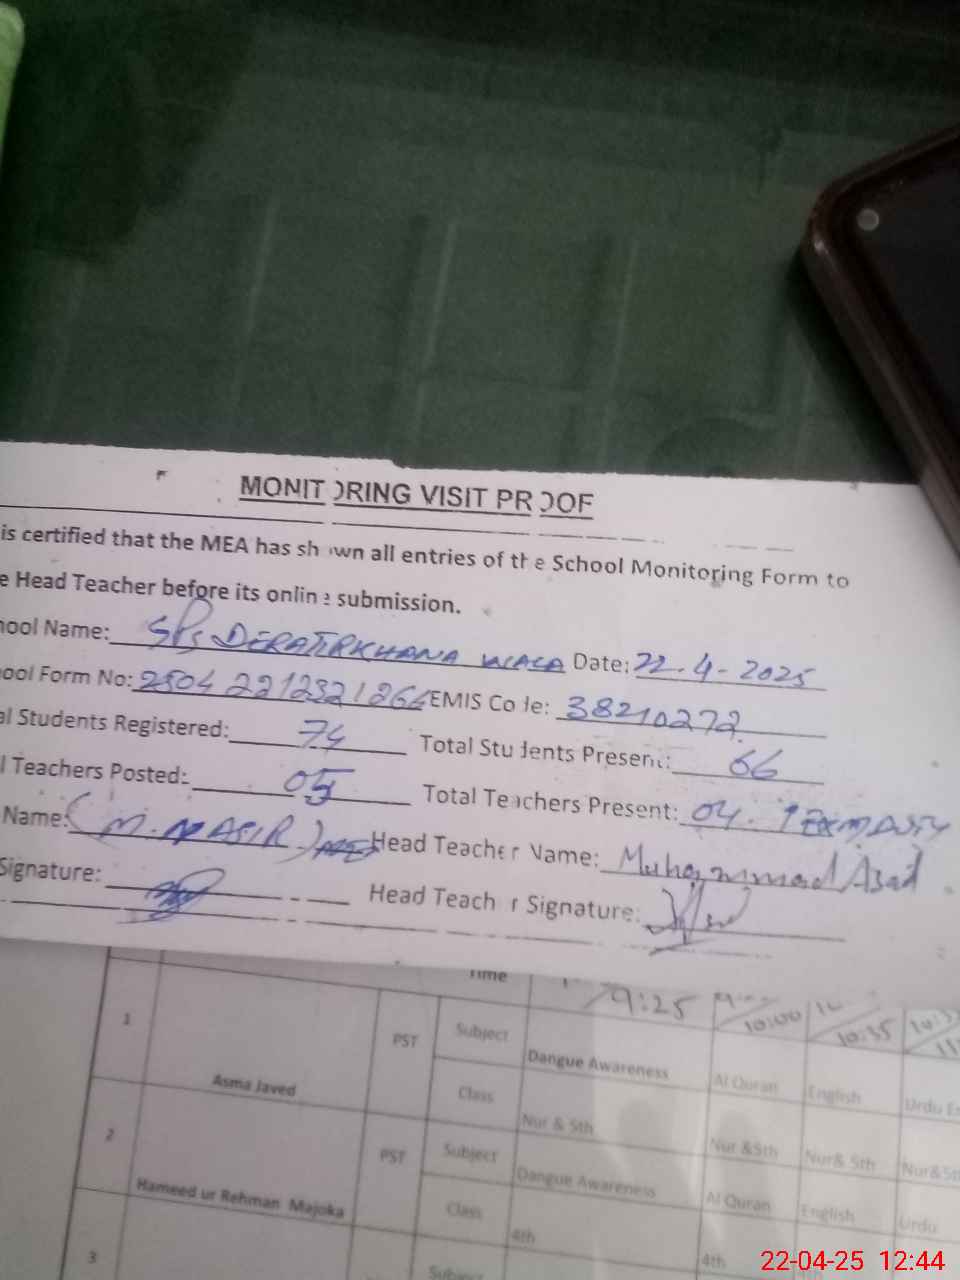 MONITORING VISIT PROOF
is certified that the MEA has shown all entries of the School Monitoring Form to
e Head Teacher before its online submission.
hool Name: SPS DERATIRKHANA WALA Date: 22-4-2025
ool Form No: 2504 221232126 EMIS Code: 38210272
al Students Registered: 74 Total Students Present: 66
l Teachers Posted: 05 Total Teachers Present: 04.
Name: (M. NASIR) Head Teacher Name: Muhammad Asad
Signature: Head Teacher Signature:
Time 9:25 10:00 10:35
1 Asma Javed PST Subject Dangue Awareness Al Quran English Urdu
Class Nur & 5th Nur &5th Nur& 5th Nur&5t
2 Hameed ur Rehman Majoka PST Subject Dangue Awareness Al Quran English Urdu
Class 4th 4th
3 Subject
22-04-25 12:44